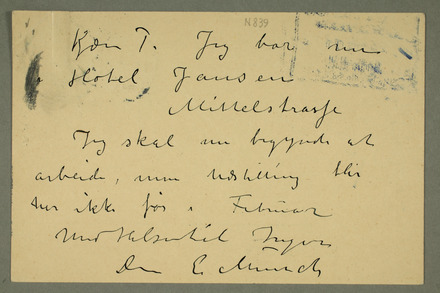 N 839
Kære T. Jeg bor nu
i Hôtel Jansen
Mittelstrasse
Jeg skal nu begynde at
arbeide, min Udstilling blir
her ikke før i Februar
Med Hilsen til Inger
Din E Munch